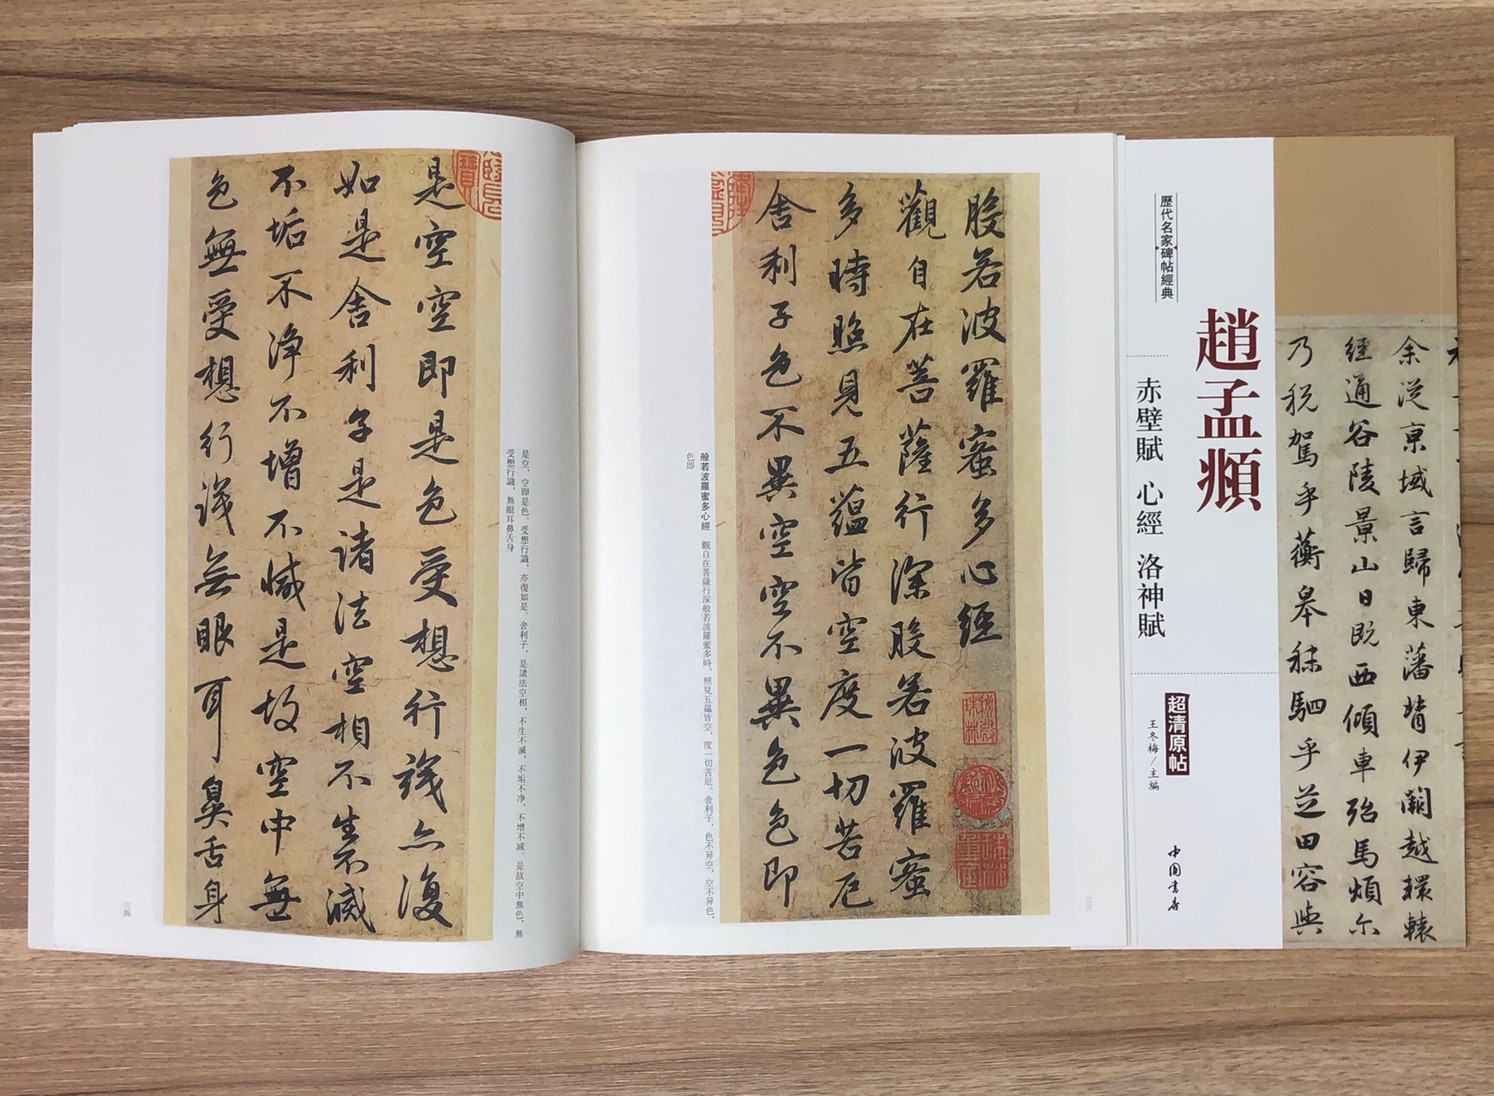 歷代名家碑帖經典
趙孟頫
赤壁賦 心經 洛神賦
超清原帖
王冬梅／主編
中国书店
余從京域言歸東藩背伊闕越轘轅
經通谷陵景山日既西傾車殆馬煩尓
乃稅駕乎蘅皋秣駟乎芝田容與
般若波羅蜜多心經
觀自在菩薩行深般若波羅蜜
多時照見五蘊皆空度一切苦厄
舍利子色不異空空不異色色即
般若波羅蜜多心經 觀自在菩薩行深般若波羅蜜多時，照見五蘊皆空，度一切苦厄。舍利子，色不异空，空不异色，
色即
是空空即是色受想行識亦復
如是舍利子是諸法空相不生不滅
不垢不淨不增不減是故空中無
色無受想行識無眼耳鼻舌身
是空，空即是色。受想行識，亦復如是。舍利子，是諸法空相，不生不滅，不垢不净，不增不减。是故空中無色，無
受想行識，無眼耳鼻舌身